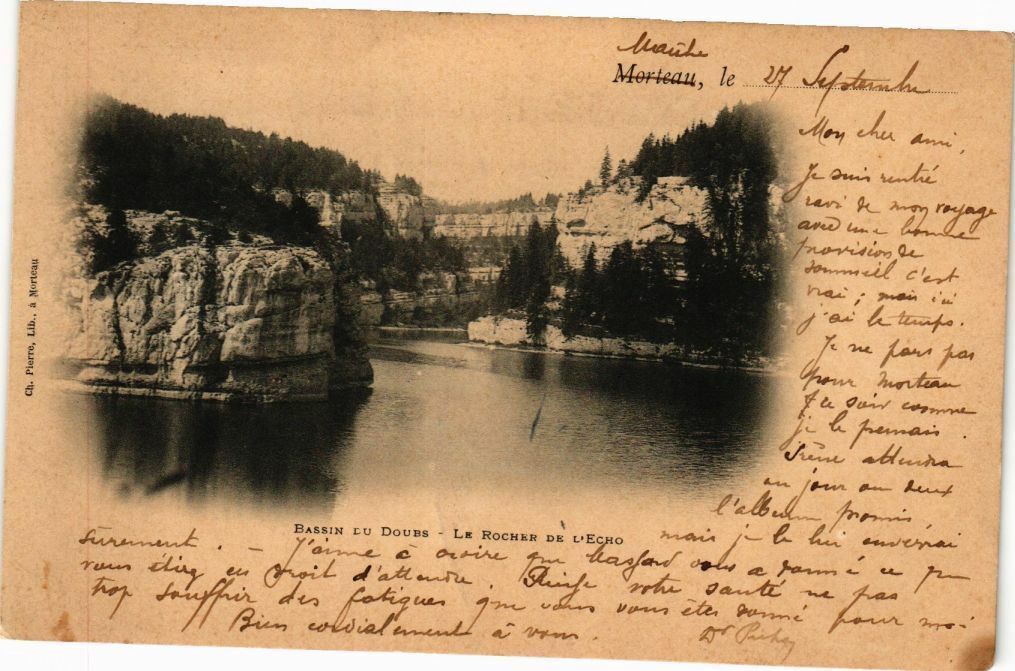 Morteau, le 27 Septembre
Mon cher ami,
Je suis rentré
ravi de mon voyage
avec une bonne
provision de
sommeil c'est
vrai ; mais ici
j'ai le temps.
Je ne pars pas
pour Morteau
ce soir comme
je le pensais.
Irène attendra
un jour ou deux
l'album promis,
mais je le lui enverrai
sûrement. – J'aime à croire que vous a donné ce que
vous étiez en droit d'attendre. Puisse votre santé ne pas
trop souffrir des fatigues que vous vous êtes donné pour moi
Bien cordialement à vous.
Dr
BASSIN DU DOUBS - LE ROCHER DE L'ECHO
Ch. Pierre, Lib., à Morteau